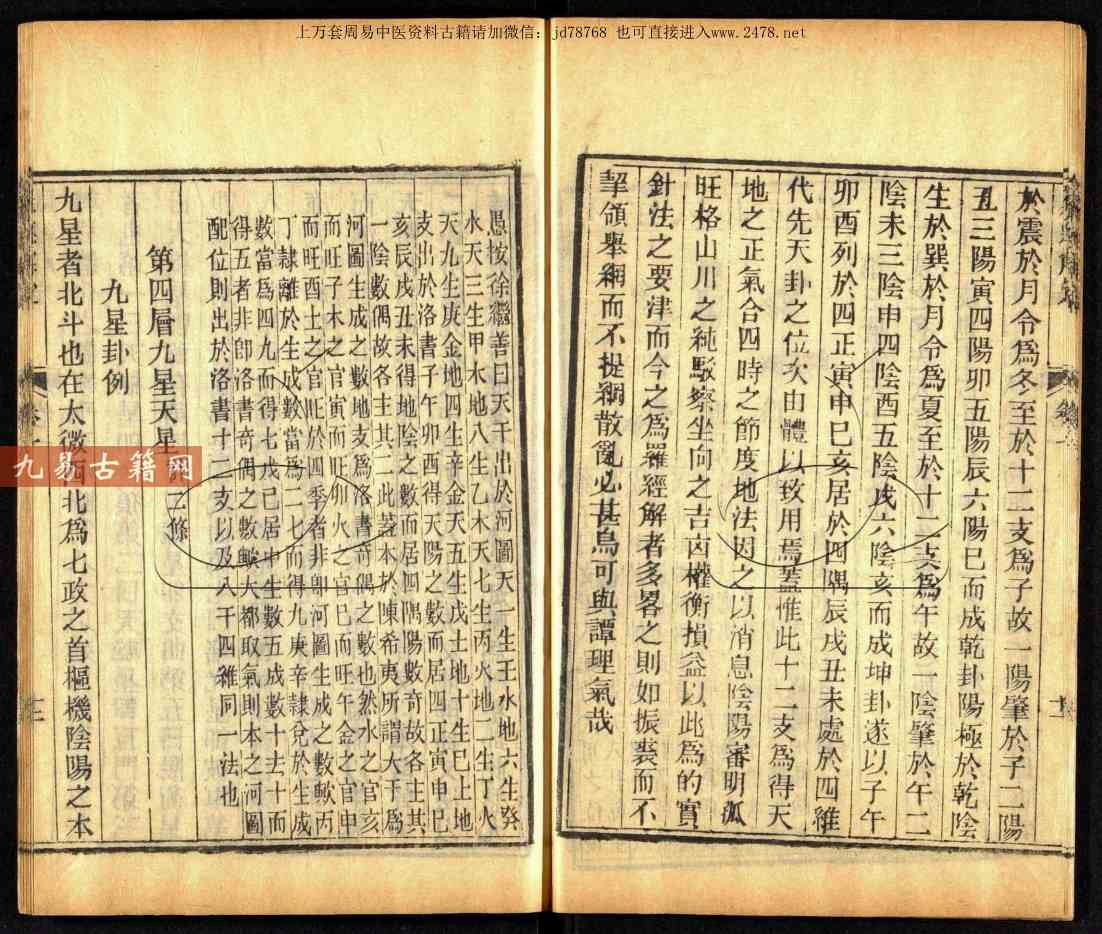 上万套周易中医资料古籍请加微信：jd78768 也可直接进入www.2478.net
於震於月令爲冬至於十二支爲子故一陽肇於子二陽
丑三陽寅四陽卯五陽辰六陽巳而成乾卦陽極於乾陰
生於巽於月令爲夏至於十二支爲午故一陰肇於午二
陰未三陰申四陰酉五陰戌六陰亥而成坤卦遂以子午
卯酉列於四正寅申巳亥居於四隅辰戌丑未處於四維
代先天卦之位次由體以致用焉蓋惟此十二支爲得天
地之正氣合四時之節度地法因之以消息陰陽審明孤
旺格山川之純駁察坐向之吉凶權衡損益以此爲的實
針法之要津而今之爲羅經解者多畧之則如振裘而不
挈領舉網而不提綱散亂必甚烏可與譚理氣哉
愚按徐繼善曰天干出於河圖天一生壬水地六生癸
水天三生甲木地八生乙木天七生丙火地二生丁火
天九生庚金地四生辛金天五生戊土地十生巳土地
支出於洛書子午卯酉得天陽之數而居四正寅申巳
亥辰戌丑未得地陰之數而居四隅陽數奇故各主其
一陰數偶故各主其二此蓋本於陳希夷所謂大于爲
河圖生成之數地支爲洛書奇偶之數也然水之官亥
而旺子木之官寅而旺卯火之官巳而旺午金之官申
而旺酉土之官旺於四季者非卽河圖生成之數歟丙
丁隷離於生成數當爲二七而得九庚辛隷兌於生成
數當爲四九而得七戊巳居中生數五成數十去十而
得五者非卽洛書奇偶之數歟大都取氣則本之河圖
配位則出於洛書十二支以及八干四維同一法也
第四層九星天星 二條
九星卦例
九星者北斗也在太微西北爲七政之首樞機陰陽之本
九易古籍网